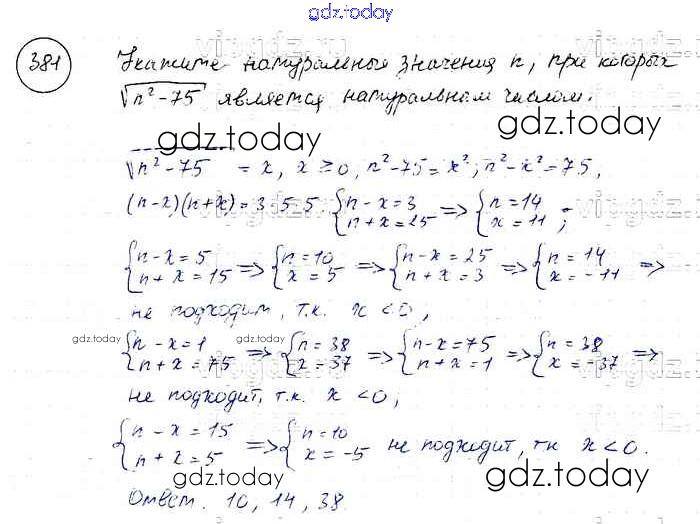 gdz.today
381 Укажите натуральные значения n, при которых
√n²-75 является натуральным числом.
gdz.today
gdz.today
√n²-75 = x, x ≥ 0, n²-75 = x²; n²-x² = 75,
(n-x)(n+x) = 3·5·5 {n-x=3 n+x=25 => {n=14 x=11 ;
{n-x=5 n+x=15 => {n=10 x=5 => {n-x=25 n+x=3 => {n=14 x=-11 =>
не подходит, т.к. x < 0,
gdz.today
gdz.today
{n-x=1 n+x=75 => {n=38 x=37 => {n-x=75 n+x=1 => {n=38 x=-37 =>
не подходит, т.к. x < 0;
gdz.today
{n-x=15 n+x=5 => {n=10 x=-5 не подходит, тк x < 0.
gdz.today
Ответ. 10, 14, 38.